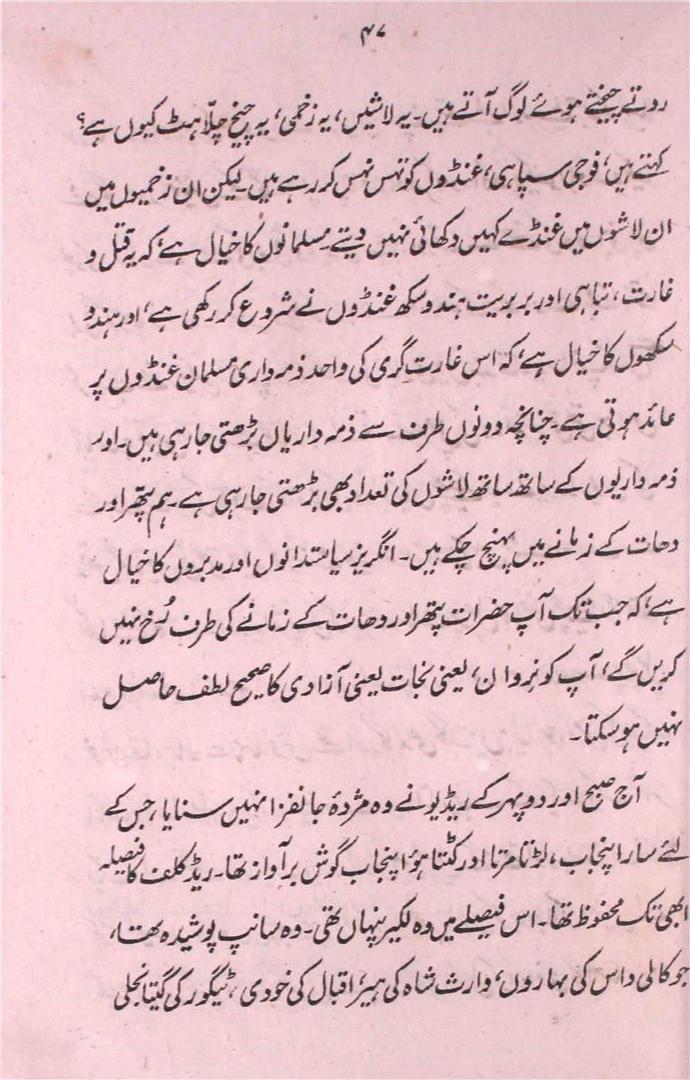 ۴۷
روتے چیختے ہوئے لوگ آتے ہیں۔ یہ لاشیں، یہ زخمی، یہ چیخ چلّاہٹ کیوں ہے؟
کہتے ہیں، فوجی سپاہی، غنڈوں کو تہس نہس کر رہے ہیں۔ لیکن ان زخمیوں میں
ان لاشوں میں غنڈے کہیں دکھائی نہیں دیتے۔ مسلمانوں کا خیال ہے، کہ یہ قتل و
غارت، تباہی اور بربریت ہندو سکھ غنڈوں نے شروع کر رکھی ہے، اور ہندو
سکھوں کا خیال ہے، کہ اس غارت گری کی واحد ذمہ داری مسلمان غنڈوں پر
عائد ہوتی ہے۔ چنانچہ دونوں طرف سے ذمہ داریاں بڑھتی جا رہی ہیں۔ اور
ذمہ داریوں کے ساتھ ساتھ لاشوں کی تعداد بھی بڑھتی جا رہی ہے۔ ہم پتھر اور
دھات کے زمانے میں پہنچ چکے ہیں۔ انگریز سیاستدانوں اور مدبروں کا خیال
ہے، کہ جب تک آپ حضرات پتھر اور دھات کے زمانے کی طرف رُخ نہیں
کریں گے، آپ کو نروان، یعنی نجات یعنی آزادی کا صحیح لطف حاصل
نہیں ہو سکتا۔
آج صبح اور دوپہر کے ریڈیو نے وہ مژدۂ جانفزا نہیں سنایا، جس کے
لئے سارا پنجاب، لڑتا مرتا اور کٹتا ہؤا پنجاب گوش بر آواز تھا۔ ریڈ کلف کا فیصلہ
ابھی تک محفوظ تھا۔ اس فیصلے میں وہ لکیر پنہاں تھی۔ وہ سانپ پوشیدہ تھا،
جو کالی داس کی بہاروں، وارث شاہ کی ہیر، اقبال کی خودی، ٹیگور کی گیتانجلی